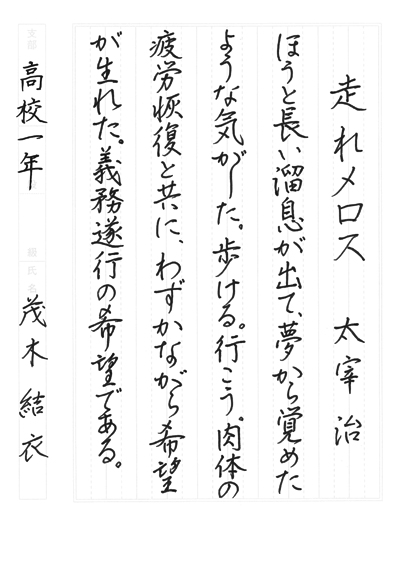 走れメロス 太宰治
ほうと長い溜息が出て、夢から覚めた
ような気がした。歩ける。行こう。肉体の
疲労恢復と共に、わずかながら希望
が生れた。義務遂行の希望である。
支部 高校一年
級 氏名 茂木結衣